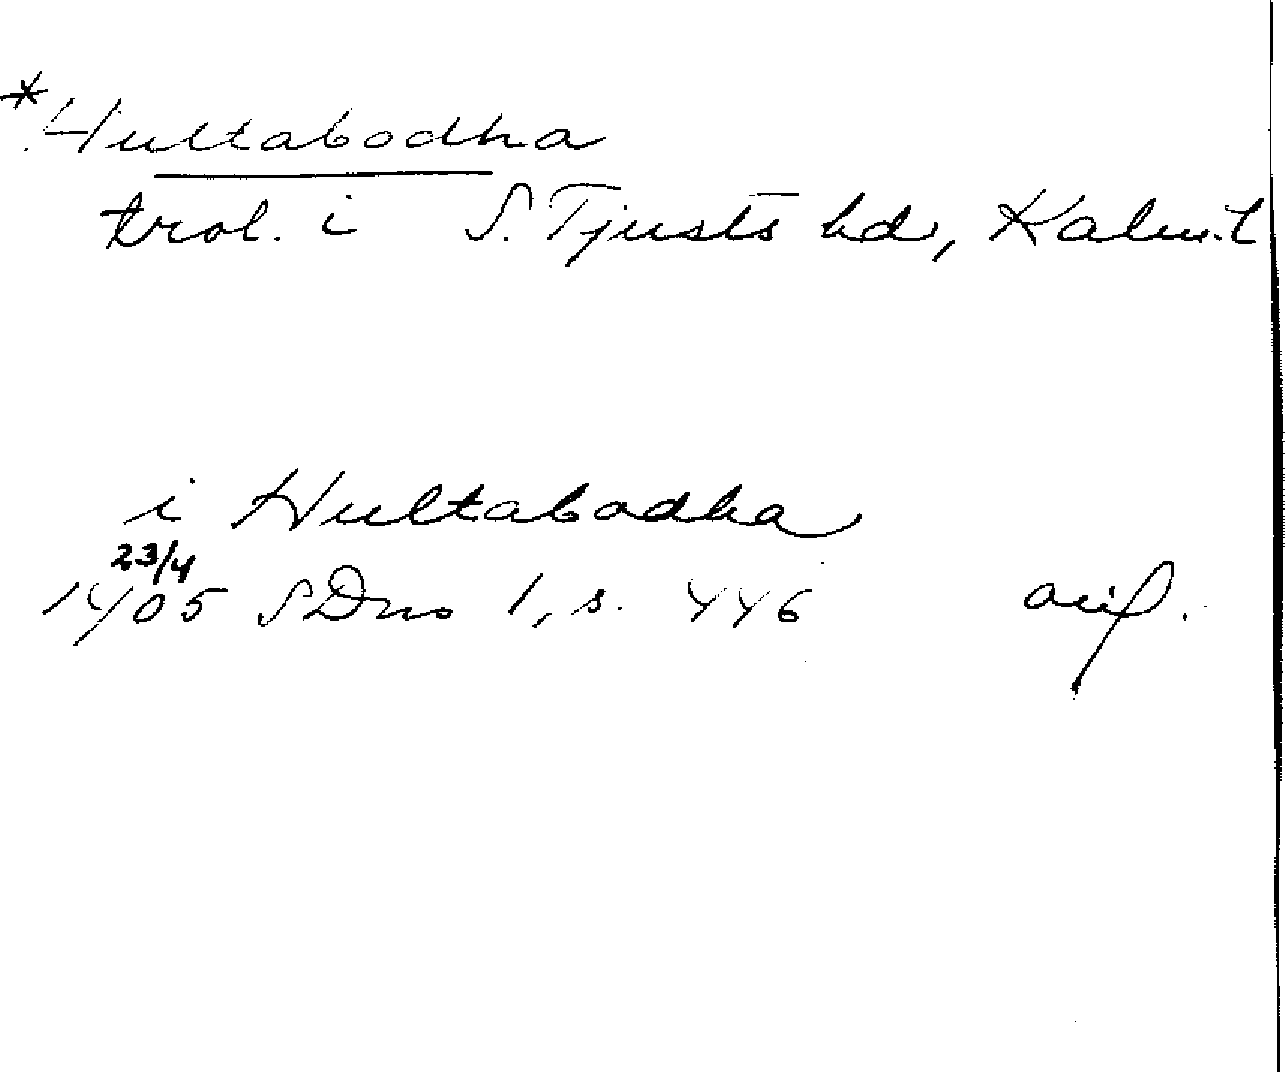 *Hultabodha
trol. i S. Tjusts hd, Kalm. l
i Hultabodha
23/4
1405 SDns 1, s. 446 avif.